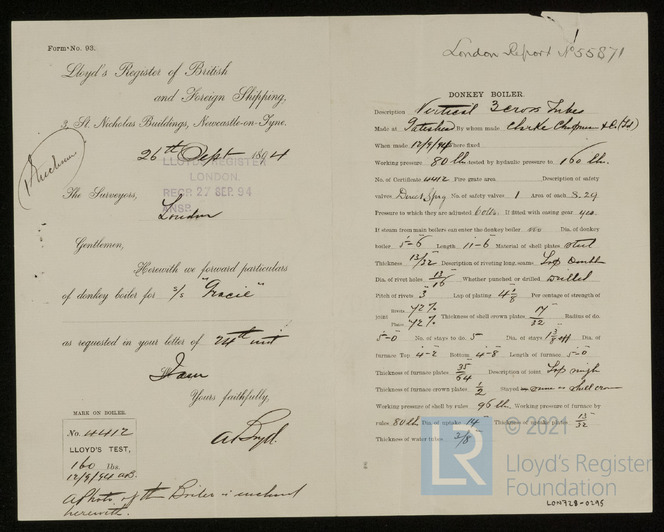 Form No. 93.
Lloyd's Register of British
and Foreign Shipping,
3, St. Nicholas Buildings, Newcastle-on-Tyne.
26th Sept 1894
LLOYD'S REGISTER
LONDON.
RECD 27 SEP. 94
The Surveyors,
London
Gentlemen,
Herewith we forward particulars
of donkey boiler for s/s "Gracie"
as requested in your letter of 24th inst
Yours faithfully,
MARK ON BOILER.
No. 4412
LLOYD'S TEST,
160 lbs.
12/9/94 A.B.
A photo of the Boiler is enclosed
herewith.
London Report No 55871
DONKEY BOILER.
Description Vertical 3 cross Tubes
Made at Gateshead By whom made Clarke Chapman & Co (Ld)
When made 12/9/94 Where fixed
Working pressure 80 lb tested by hydraulic pressure to 160 lb.
No. of Certificate 4412 Fire grate area Description of safety
valves Direct Spring No. of safety valves 1 Area of each 8.29
Pressure to which they are adjusted 80 lb. If fitted with easing gear yes.
If steam from main boilers can enter the donkey boiler no Dia. of donkey
boiler 5-6 Length 11-6 Material of shell plates steel
Thickness 13/32 Description of riveting long. seams Lap Double
Dia. of rivet holes 13/16 Whether punched or drilled Drilled
Pitch of rivets 3 Lap of plating 4 1/8 Per centage of strength
of joint Rivets 72% Plate 72% Thickness of shell crown plates 17/32 Radius of do.
5-0 No. of stays to do. 5 Dia. of stays 1 3/8 eff Dia. of
furnace Top 4-2 Bottom 4-8 Length of furnace 5-0
Thickness of furnace plates 35/64 Description of joint Lap single
Thickness of furnace crown plates 1/2 Stayed same as shell crown
Working pressure of shell by rules 96 lb Working pressure of furnace by
rules 80 lb Dia. of uptake 14 Thickness of uptake plates 13/32
Thickness of water tubes 3/8
LR
© 2021
Lloyd's Register
Foundation
LON728-0295